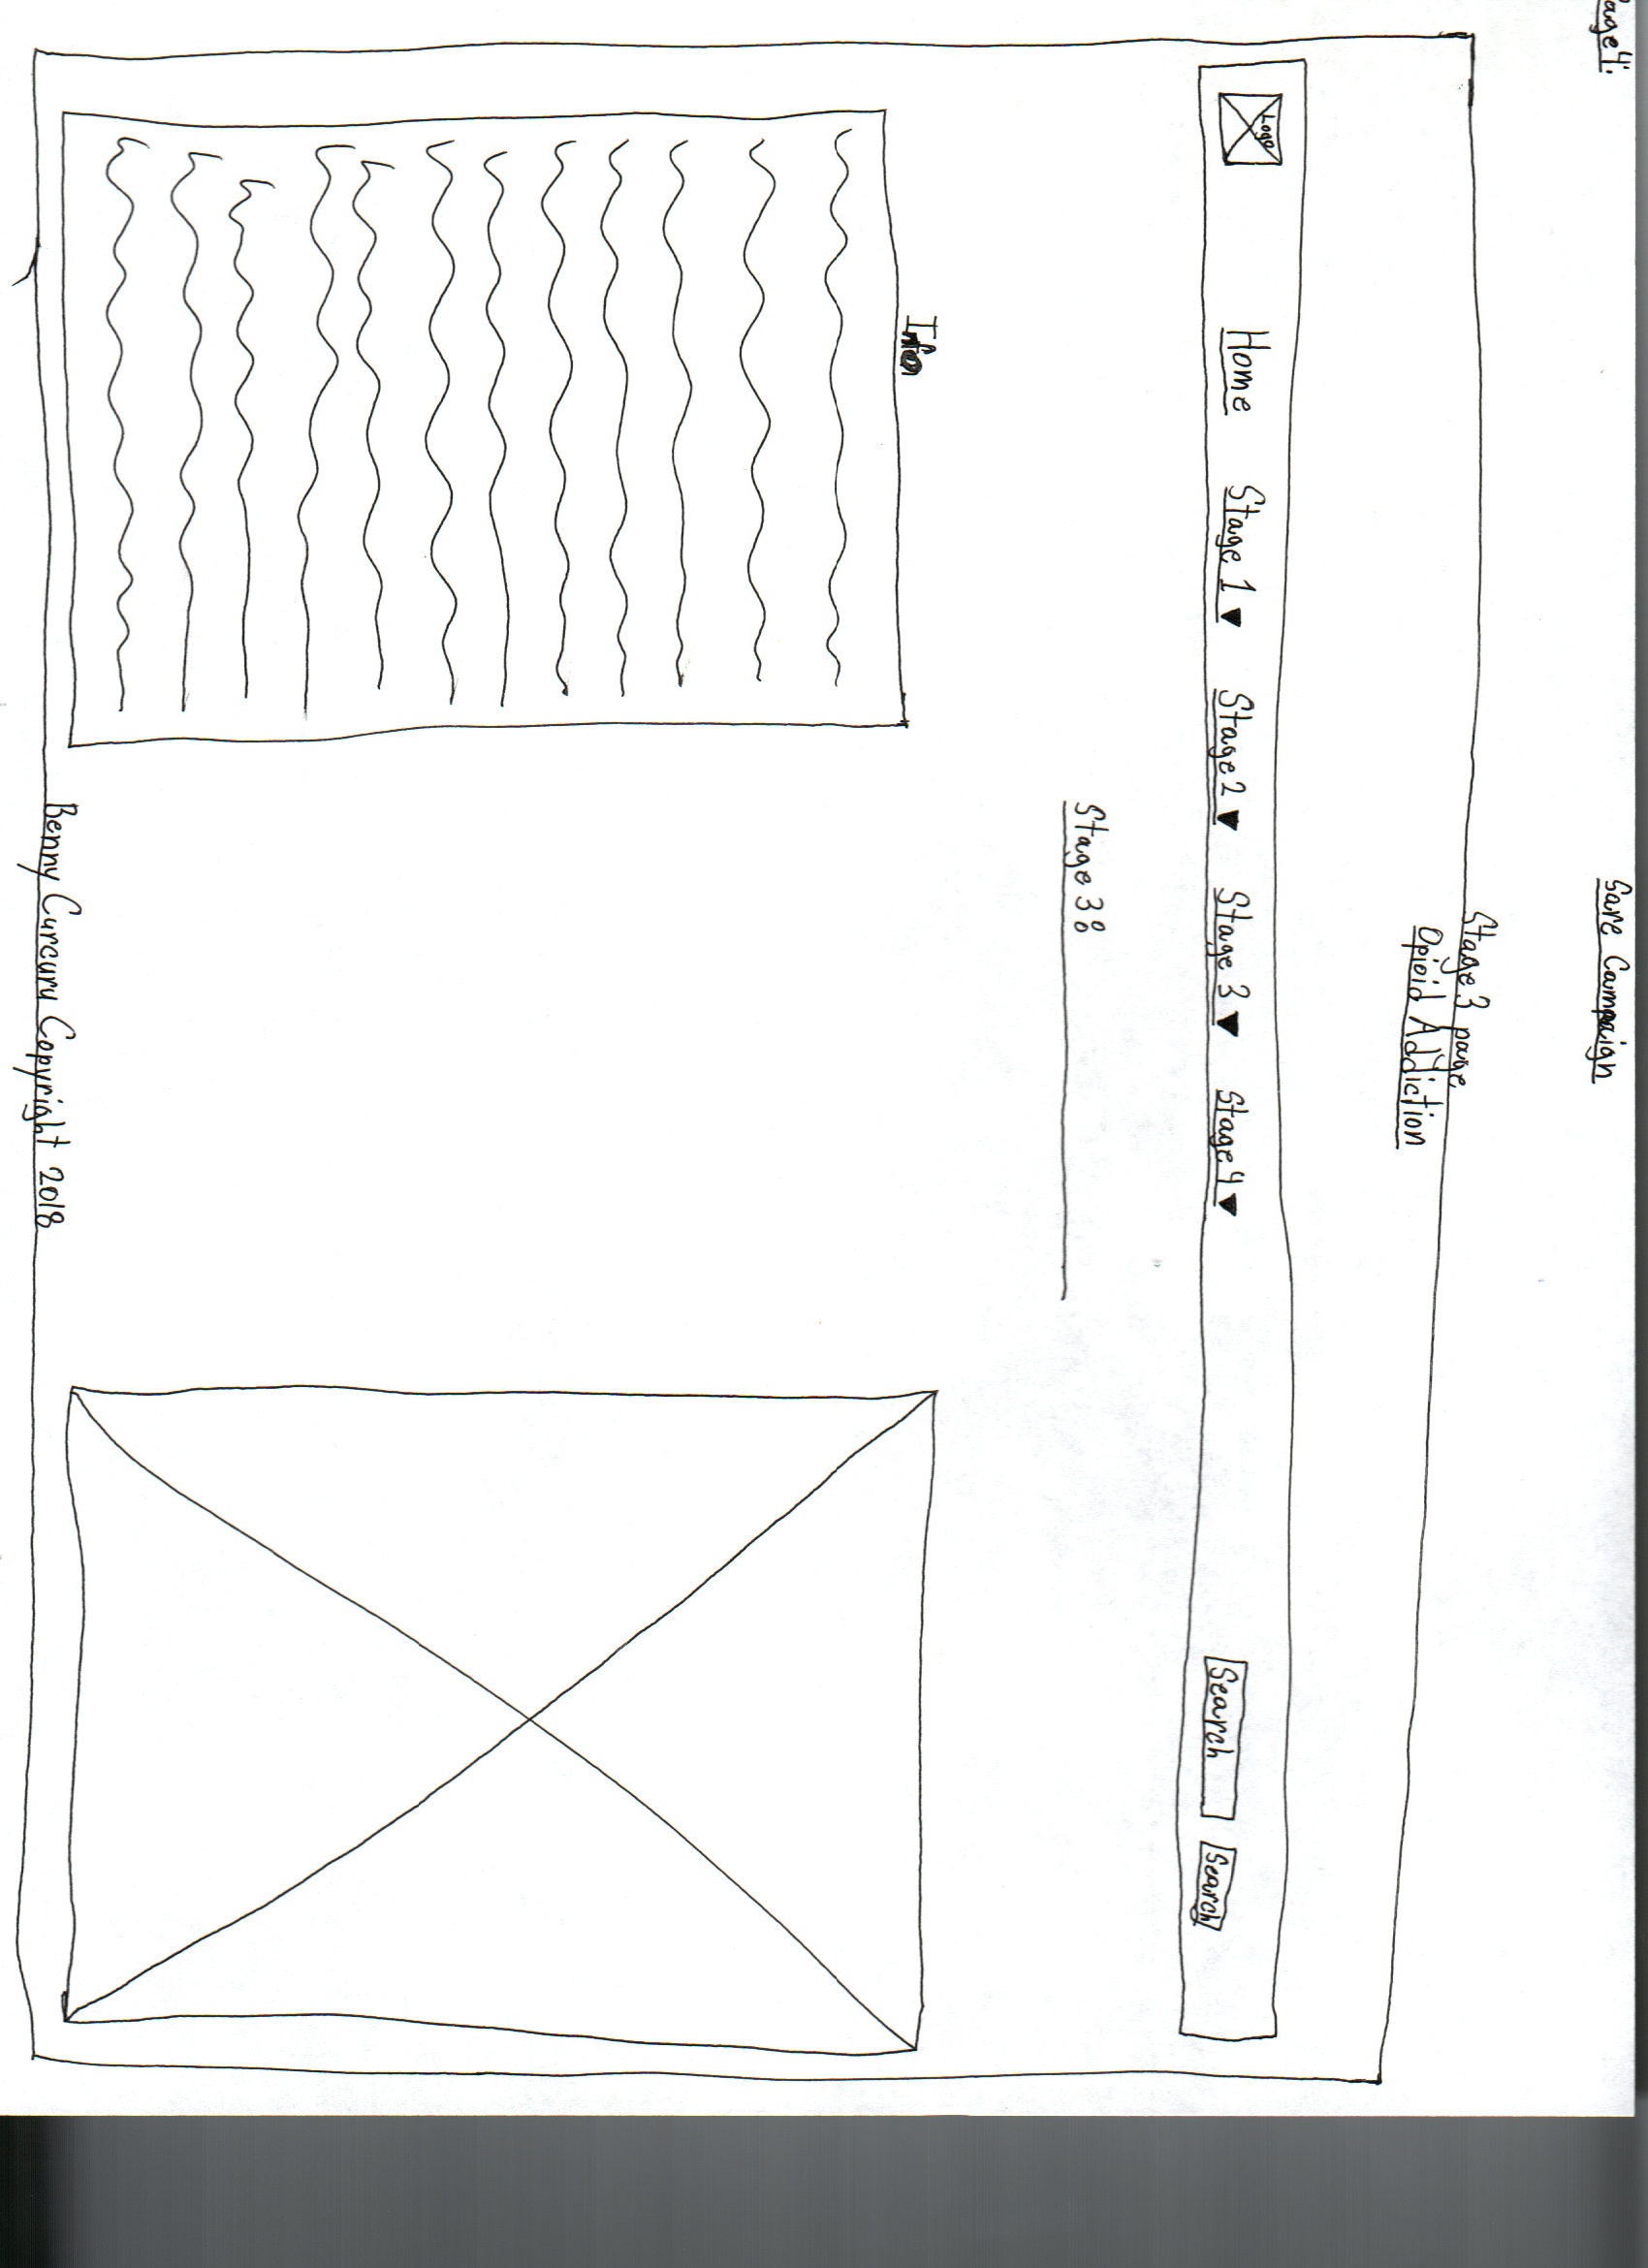 age 4:
Sare Campaign
Stage 3 page
Opioid Addiction
Logo
Home Stage 1 ▼ Stage 2 ▼ Stage 3 ▼ Stage 4 ▼ Search Search
Stage 3:
Info
Benny Curcuru Copyright 2018